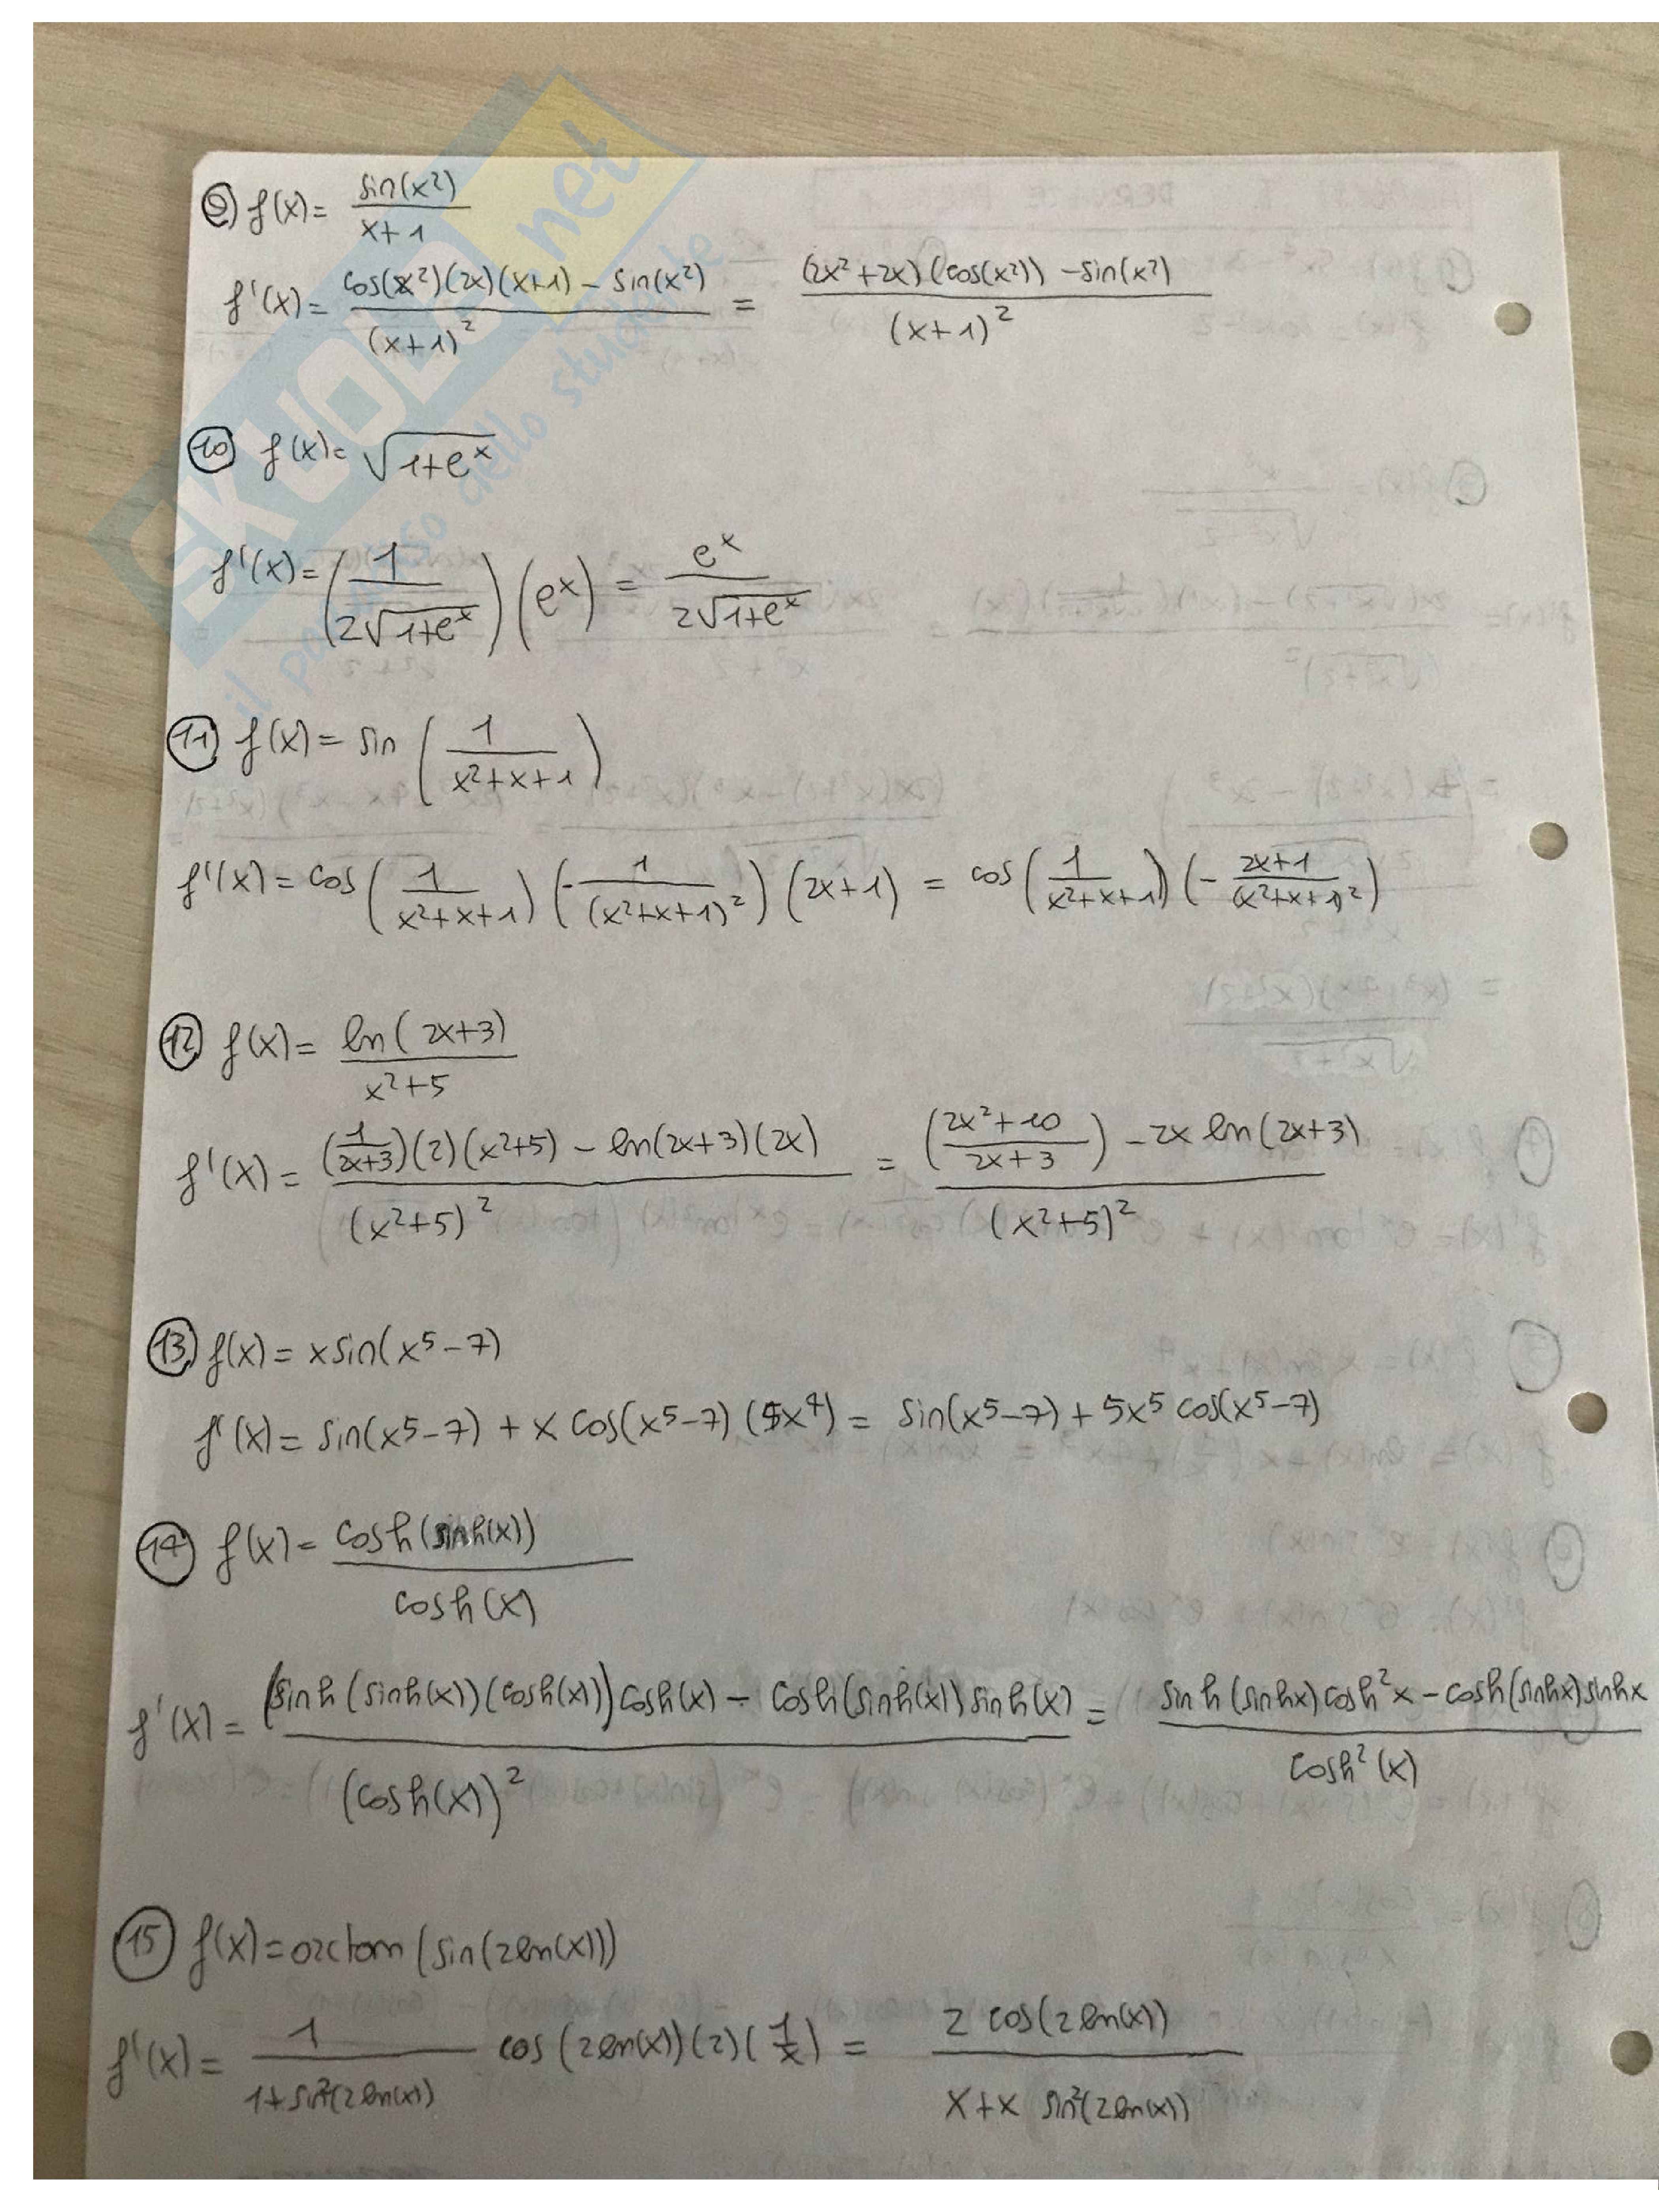 9) f(x)= sin(x²) / x+1
f'(x)= cos(x²)(2x)(x+1) - sin(x²) / (x+1)² = (2x²+2x)(cos(x²)) - sin(x²) / (x+1)²
10) f(x)= √1+e^x
f'(x)= (1 / 2√1+e^x) (e^x) = e^x / 2√1+e^x
11) f(x)= sin (1 / x²+x+1)
f'(x)= cos (1 / x²+x+1) (- 1 / (x²+x+1)²) (2x+1) = cos (1 / x²+x+1) (- 2x+1 / (x²+x+1)²)
12) f(x)= ln(2x+3) / x²+5
f'(x)= (1 / 2x+3)(2)(x²+5) - ln(2x+3)(2x) / (x²+5)² = (2x²+10 / 2x+3) - 2x ln(2x+3) / (x²+5)²
13) f(x)= x sin(x⁵-7)
f'(x)= sin(x⁵-7) + x cos(x⁵-7) (5x⁴) = sin(x⁵-7) + 5x⁵ cos(x⁵-7)
14) f(x)= cosh(sinh(x)) / cosh(x)
f'(x)= (sinh(sinh(x))(cosh(x))) cosh(x) - cosh(sinh(x)) sinh(x) / (cosh(x))² = sinh(sinhx) cosh²x - cosh(sinhx) sinhx / cosh²(x)
15) f(x)= arctan (sin(2ln(x)))
f'(x)= 1 / 1+sin²(2ln(x)) cos(2ln(x))(2)(1/x) = 2 cos(2ln(x)) / x+x sin²(2ln(x))